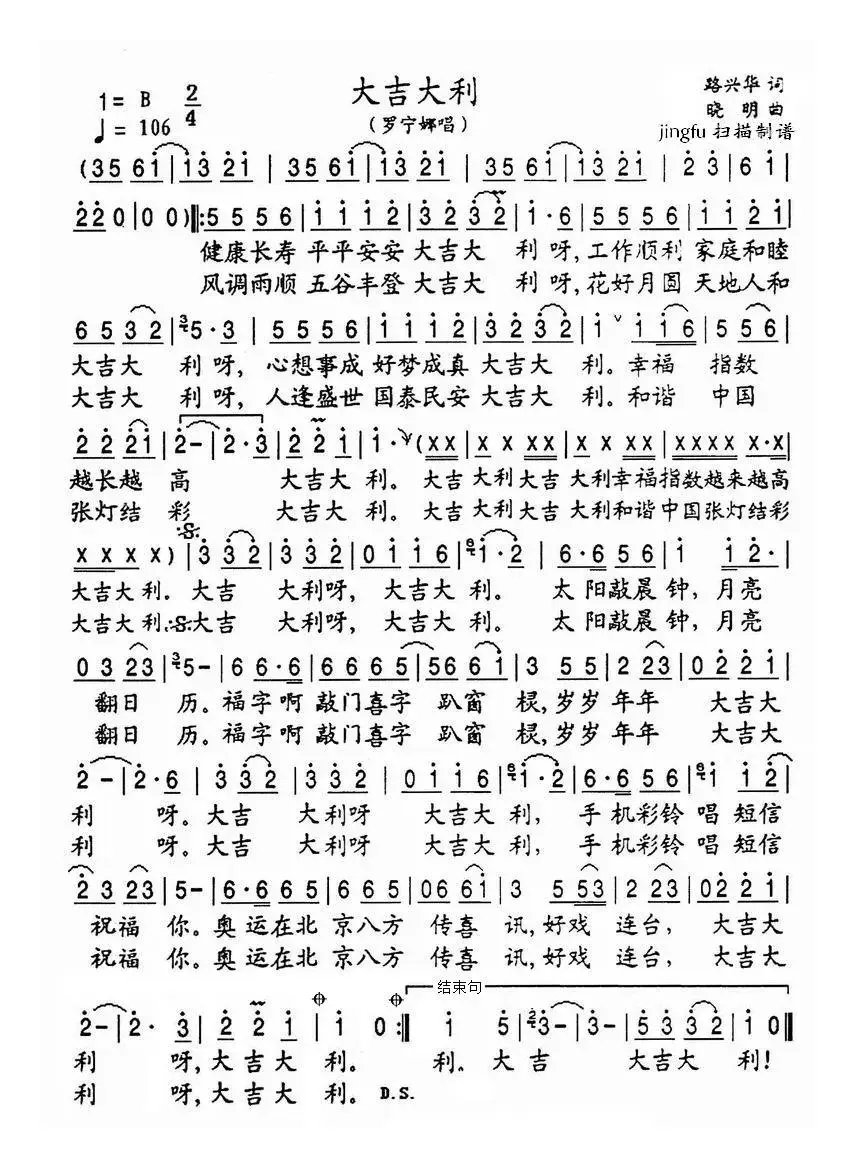 1= B 2/4
大吉大利
路兴华 词
♩= 106
（罗宁娜唱）
晓 明 曲
jingfu 扫描制谱
(35 61|13 21 | 35 61|13 21 | 35 61|13 21 | 2 3 | 6 1 |
220|00)‖:5556|1112|3232|1·6|5556|1121|
健康长寿 平平安安 大吉大 利 呀,工作顺利 家庭和睦
风调雨顺 五谷丰登 大吉大 利 呀,花好月圆 天地人和
6532|35·3|5556|1112|3232|1 ∨ 116|556|
大吉大 利 呀, 心想事成 好梦成真 大吉大 利。幸福 指数
大吉大 利 呀, 人逢盛世 国泰民安 大吉大 利。和谐 中国
2221|2-|2·3|2 2 1|1·∨(xx|x x xx|x x xx|xxxx x·x|
越长越 高 大吉大 利。大吉 大利大吉 大利幸福指数越来越高
张灯结 彩 大吉大 利。大吉 大利大吉 大利和谐中国张灯结彩
x x x x)|3 32|3 32|0116|61·2|6·656|1 12·|
大吉大利. 大吉 大利呀, 大吉大 利。 太 阳敲晨 钟, 月亮
大吉大利. 大吉 大利呀, 大吉大 利。 太 阳敲晨 钟, 月亮
0323|35-|66·6|6665|5661|3 55|2 23|0221|
翻日 历。福字啊 敲门喜字 趴窗 棂,岁岁 年年 大吉大
翻日 历。福字啊 敲门喜字 趴窗 棂,岁岁 年年 大吉大
2-|2·6|3 32|3 32|0116|61·2|6·656|61 12|
利 呀。大吉 大利呀 大吉大 利, 手 机彩铃 唱 短信
利 呀。大吉 大利呀 大吉大 利, 手 机彩铃 唱 短信
2323|5-|6·665|6665|0661|3 553|2 23|0221|
祝福 你。奥 运在北 京八方 传喜 讯,好戏 连台, 大吉大
祝福 你。奥 运在北 京八方 传喜 讯,好戏 连台, 大吉大
结束句
2-|2· 3|2 2 1|1 0:‖ 1 5|23-|3-|5332|10‖
利 呀,大吉大 利。 利。大吉 大吉大 利!
利 呀,大吉大 利。 D.S.